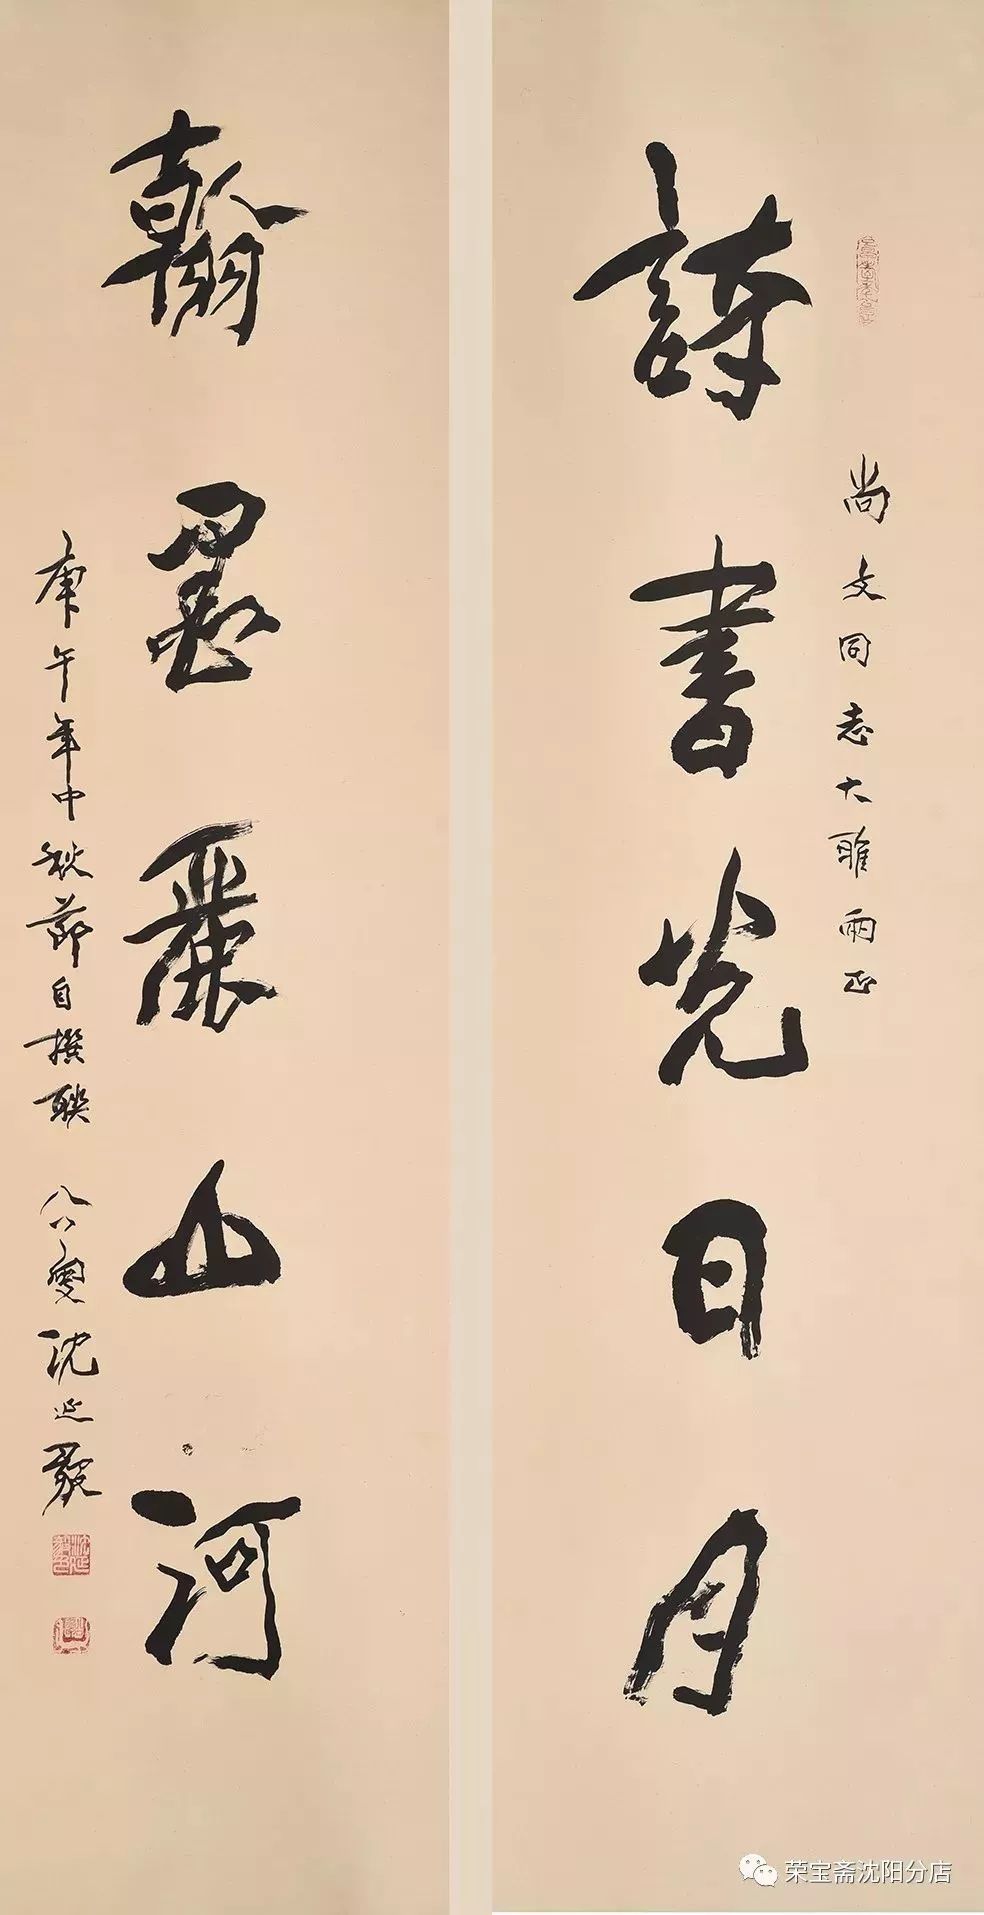 尚文同志大雅兩正
詩書光日月
翰墨麗山河
庚午年中秋節自撰聯 八八叟沈延毅
荣宝斋沈阳分店